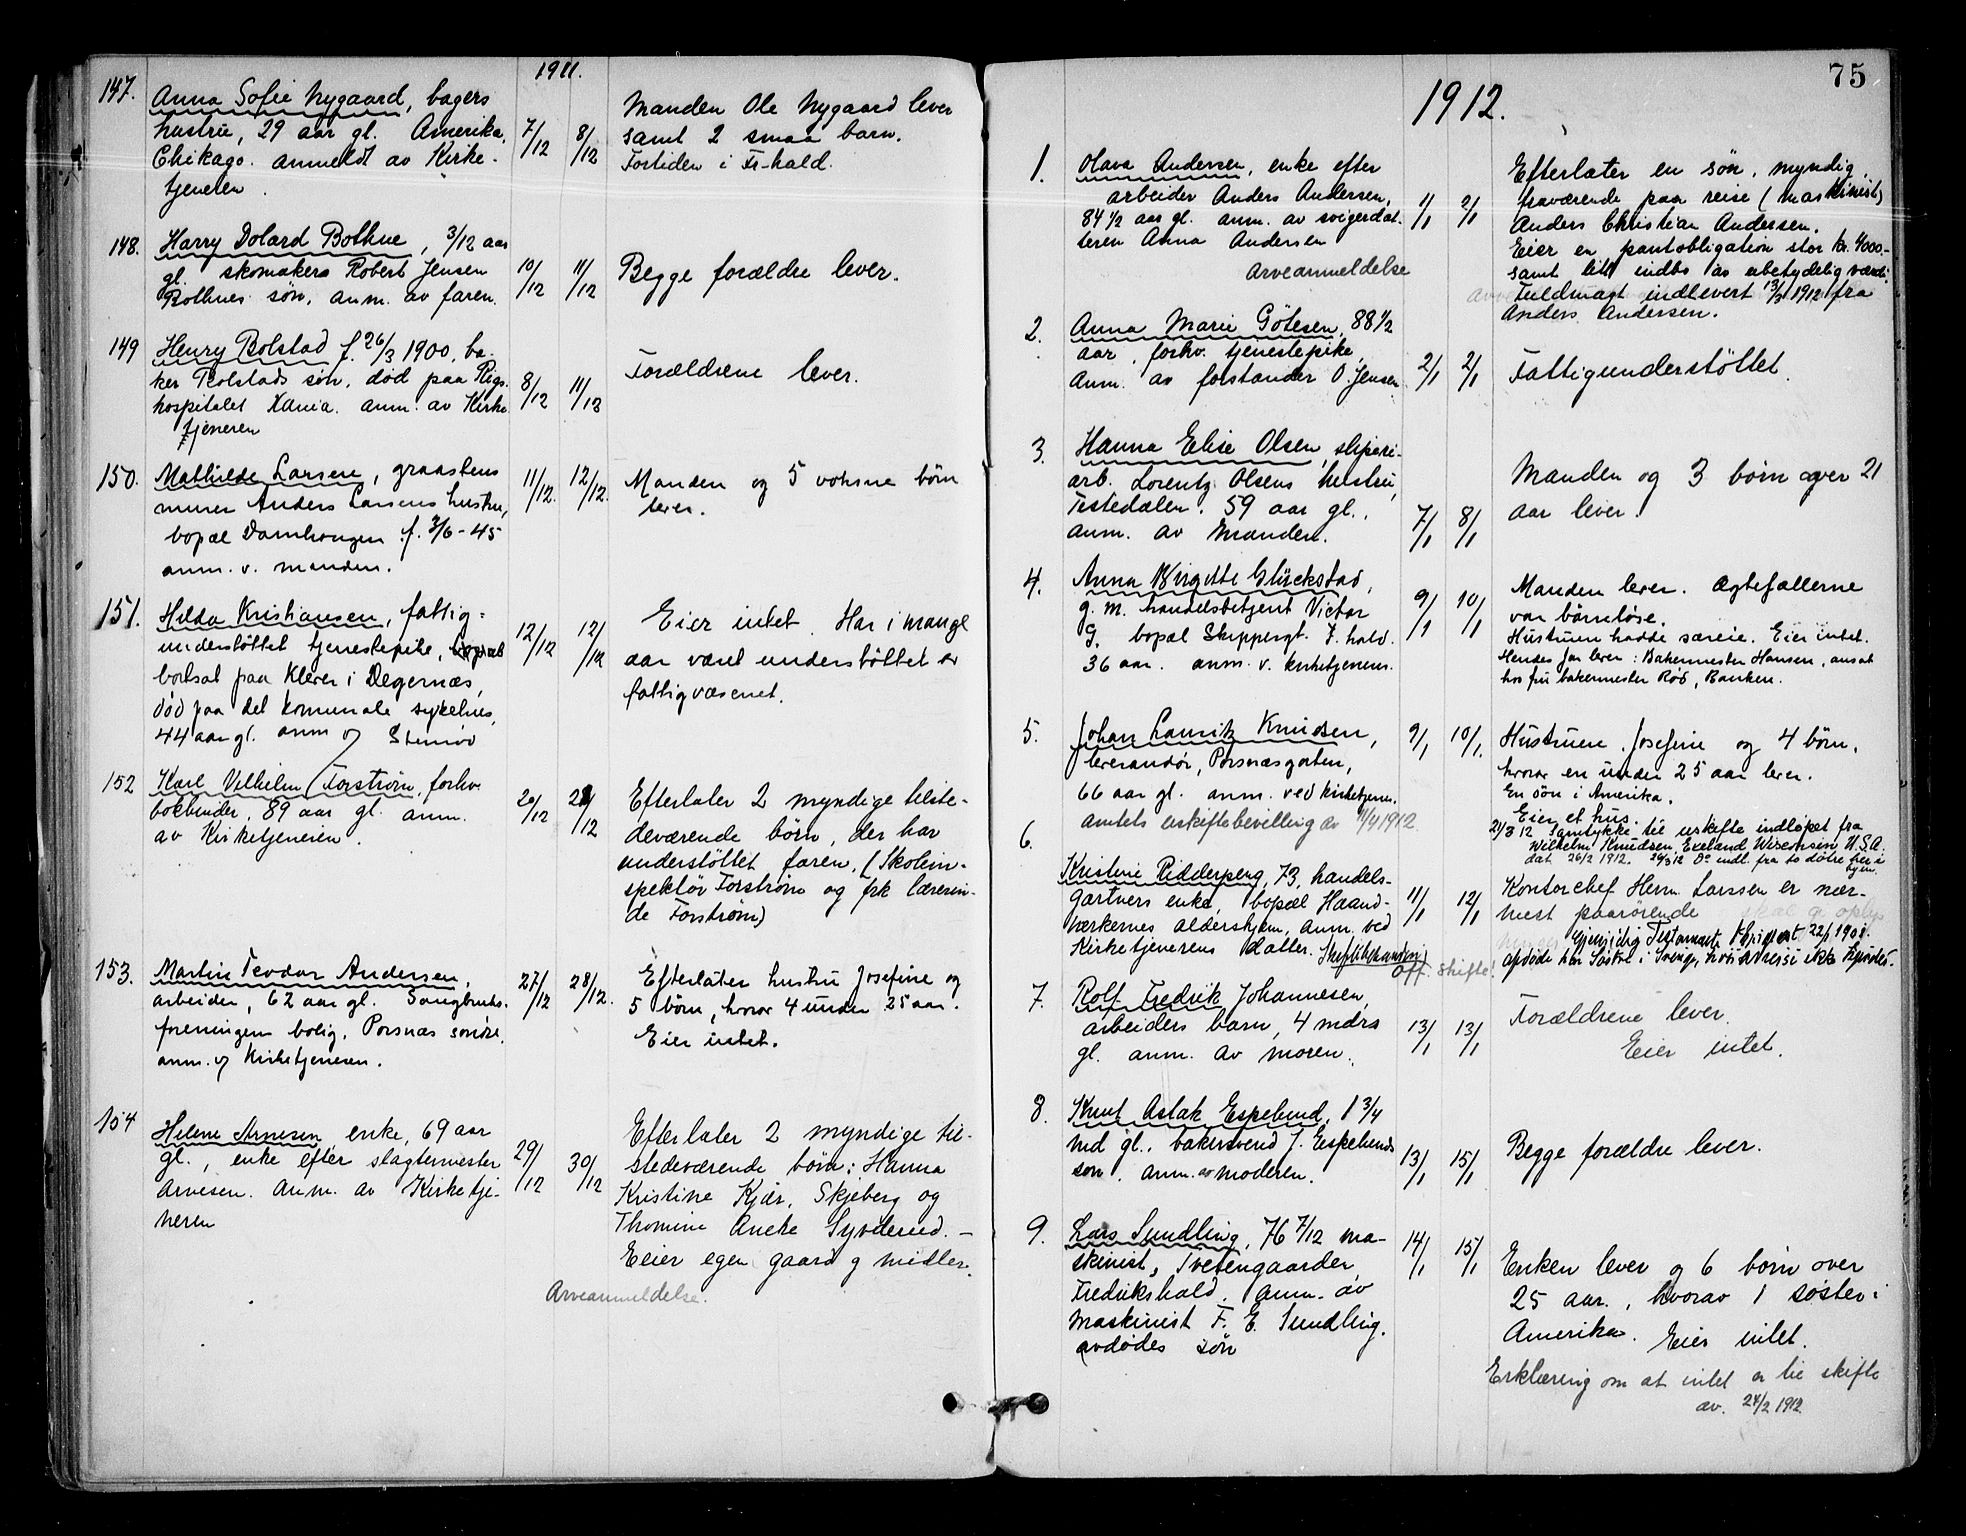 1911.
147. Anna Sofie Nygaard, bagers
hustru, 29 aar gl. Amerika,
Chikago. anmeldt av Kirke-
tjeneren.
7/12 8/12
Manden Ole Nygaard lever
samt 2 smaa barn.
Fortiden i Fr-hald.
148. Harry Dolard Bothne, 3/12 aar
gl. skomakers Robert Jensen
Bothnes søn, anm. av faren.
10/12 11/12
Begge forældre lever.
149 Henry Bolstad f. 26/3 1900, ba-
ker Bolstads søn, død paa Rigs-
hospitalet Xania. anm. av Kirke
tjeneren
8/12 11/12
Forældrene lever.
150. Mathilde Larsen, graastens
murer Anders Larsens hustru,
bopæl Damhaugen f. 3/6-45
anm. v. manden.
11/12. 12/12.
Manden og 5 voksne børn
lever.
151. Hilda Kristiansen, fattig-
understøttet tjenestepike,
bortsat paa Klever i Degernæs,
død paa det komunale sykehus,
44 aar gl. anm
12/12 12/12
Eier intet. Har i mange
aar været understøttet av
fattigvæsenet.
152 Karl Vilhelm Forstrøm, forhv.
bokbinder, 89 aar gl. anm.
av Kirketjeneren.
20/12 /12
Efterlater 2 myndige tilste-
deværende børn, der har
understøttet faren, (Skolein-
spektør Forstrøm og frk lærerin-
de Forstrøm)
153. Martin Teodor Andersen,
arbeider, 62 aar gl. Saugbruks-
foreningens bolig, Porsnæs søndre,
anm. v Kirketjeneren.
27/12 28/12.
Efterlater hustru Josefine og
5 børn, hvorav 4 under 25 aar.
Eier intet.
154 Helene Arnesen, enke, 69 aar
gl., enke efter slagtermester
Arnesen. Anm. av Kirketje-
neren
29/12 30/12
Efterlater 2 myndige til-
stedeværende børn: Hanna
Kristine Kjær, Skjeberg og
Thomine Aneke Syverud. –
Eier egen gaard og midler.
Arveanmeldelse.
75
1912.
1. Olava Andersen, enke efter
arbeider Anders Andersen,
84 1/2 aar gl. anm. av svigerdat-
teren Anna Andersen
Arveanmeldelse
1/1 2/1
Efterlater en søn, myndig,
fraværende paa reise (maskinist)
Anders Christian Andersen.
Eier en pantobligation stor kr. 4000-
samt litt indbo av ubetydelig værdi.
Fuldmagt indlevert 13/3 1912 fra
Anders Andersen.
2. Anna Marie Gøtesen, 88 1/2
aar, forhv. tjenestepike,
Anm. av forstander O. Jensen
2/1 2/1
Fattigunderstøttet.
3. Hanna Elise Olsen, sliperi-
arb. Lorentz Olsens hustru,
Tistedalen. 59 aar gl.,
anm. av Manden.
7/1 8/1
Manden og 3 børn over 21
aar lever.
4. Anna Birgitte Glückstad,
g. m. handelsbetjent Victor
G. bopæl Skippergt. F. hald.
36 aar. anm. v. kirketjeneren.
9/1 10/1
Manden lever. Ægtefællerne
var børnløse.
Hustruen hadde særeie. Eier intet.
Hendes far lever: Bakermester Hansen, ansat
hos fru bakermester Rød, Banken.
5. Johan Lauritz Knudsen,
leverandør, Porsnæsgaten,
66 aar gl. anm. ved kirketjener.
Amtets uskiftebevilling av 11/4 1912
9/1 10/1.
Hustruen Josefine og 4 børn,
hvorav en under 25 aar lever.
En søn i Amerika.
Eier et hus.
21/3 12 Samtykke til uskifte indløpet fra
Wilhelm Knudsen, Exeland Wisconsin U.S.A.
dat. 26/2 1912. 26/3 12 Do indl. fra to døtre her i
byen.
6.
Kristine Ridderpeng, 73, handels-
gartners enke, bopæl Haand-
værkernes aldershjem, anm. ved
Kirketjenerens datter.
Off. Skifte!
11/1 12/1
Kontorchef Herm. Larssen er nær-
mest paarørende
Gjensidig Testamente 22/1 1908.
7. Rolf Fredrik Johannesen,
arbeiders barn, 4 mdrs
gl. anm. av moren.
13/1 13/1
Forældrene lever.
Eier intet.
8. Knut Aslak Espelund, 1 3/4
md gl., bakersvend J. Espelunds
søn. anm. av moderen.
13/1 15/1
Begge forældre lever.
9. Lars Sundling, 76 7/12 ma-
skinist, Tvetengaarden,
Fredrikshald. anm. av
maskinist F. E. Sundling,
avdødes søn
14/1 15/1
Enken lever og 6 børn over
25 aar, hvorav 1 søster i
Amerika. Eier intet.
Erklæring om at intet er til skifte
av. 24/2 1912